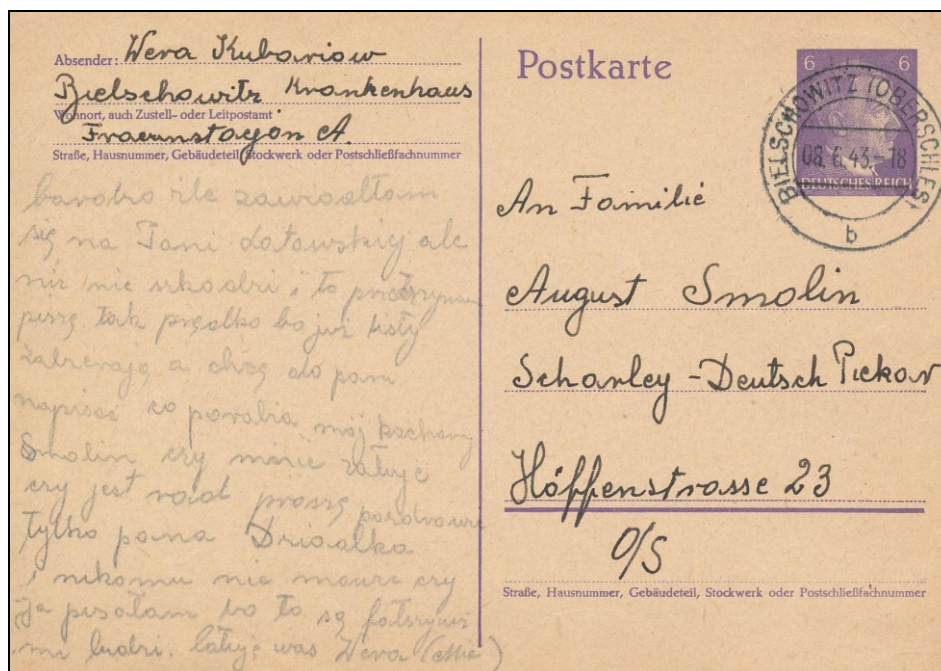 Absender: Wera Kubariow
Bielschowitz Krankenhaus
Wohnort, auch Zustell- oder Leitpostamt
A.
Straße, Hausnummer, Gebäudeteil, Stockwerk oder Postschließfachnummer
bardzo źle zawiodłam
się na Pani ale
nic nie szkodzi, i to
piszę tak prędko bo już listy
zabierają a chcę do pani
napisać co porabia mój kochany
Smolin czy mnie żałuje
czy jest rad proszę pozdrowić
tylko pana Dziadka
i nikomu nie mówić czy
Ja pisałam bo to są
mi ludzi. was Wera
Postkarte
6 6
DEUTSCHES REICH
BIELSCHOWITZ (OBERSCHLES)
08.6.43.-18
b
An Familie
August Smolin
Scharley-Deutsch Piekar
Höffenstrasse 23
O/S
Straße, Hausnummer, Gebäudeteil, Stockwerk oder Postschließfachnummer